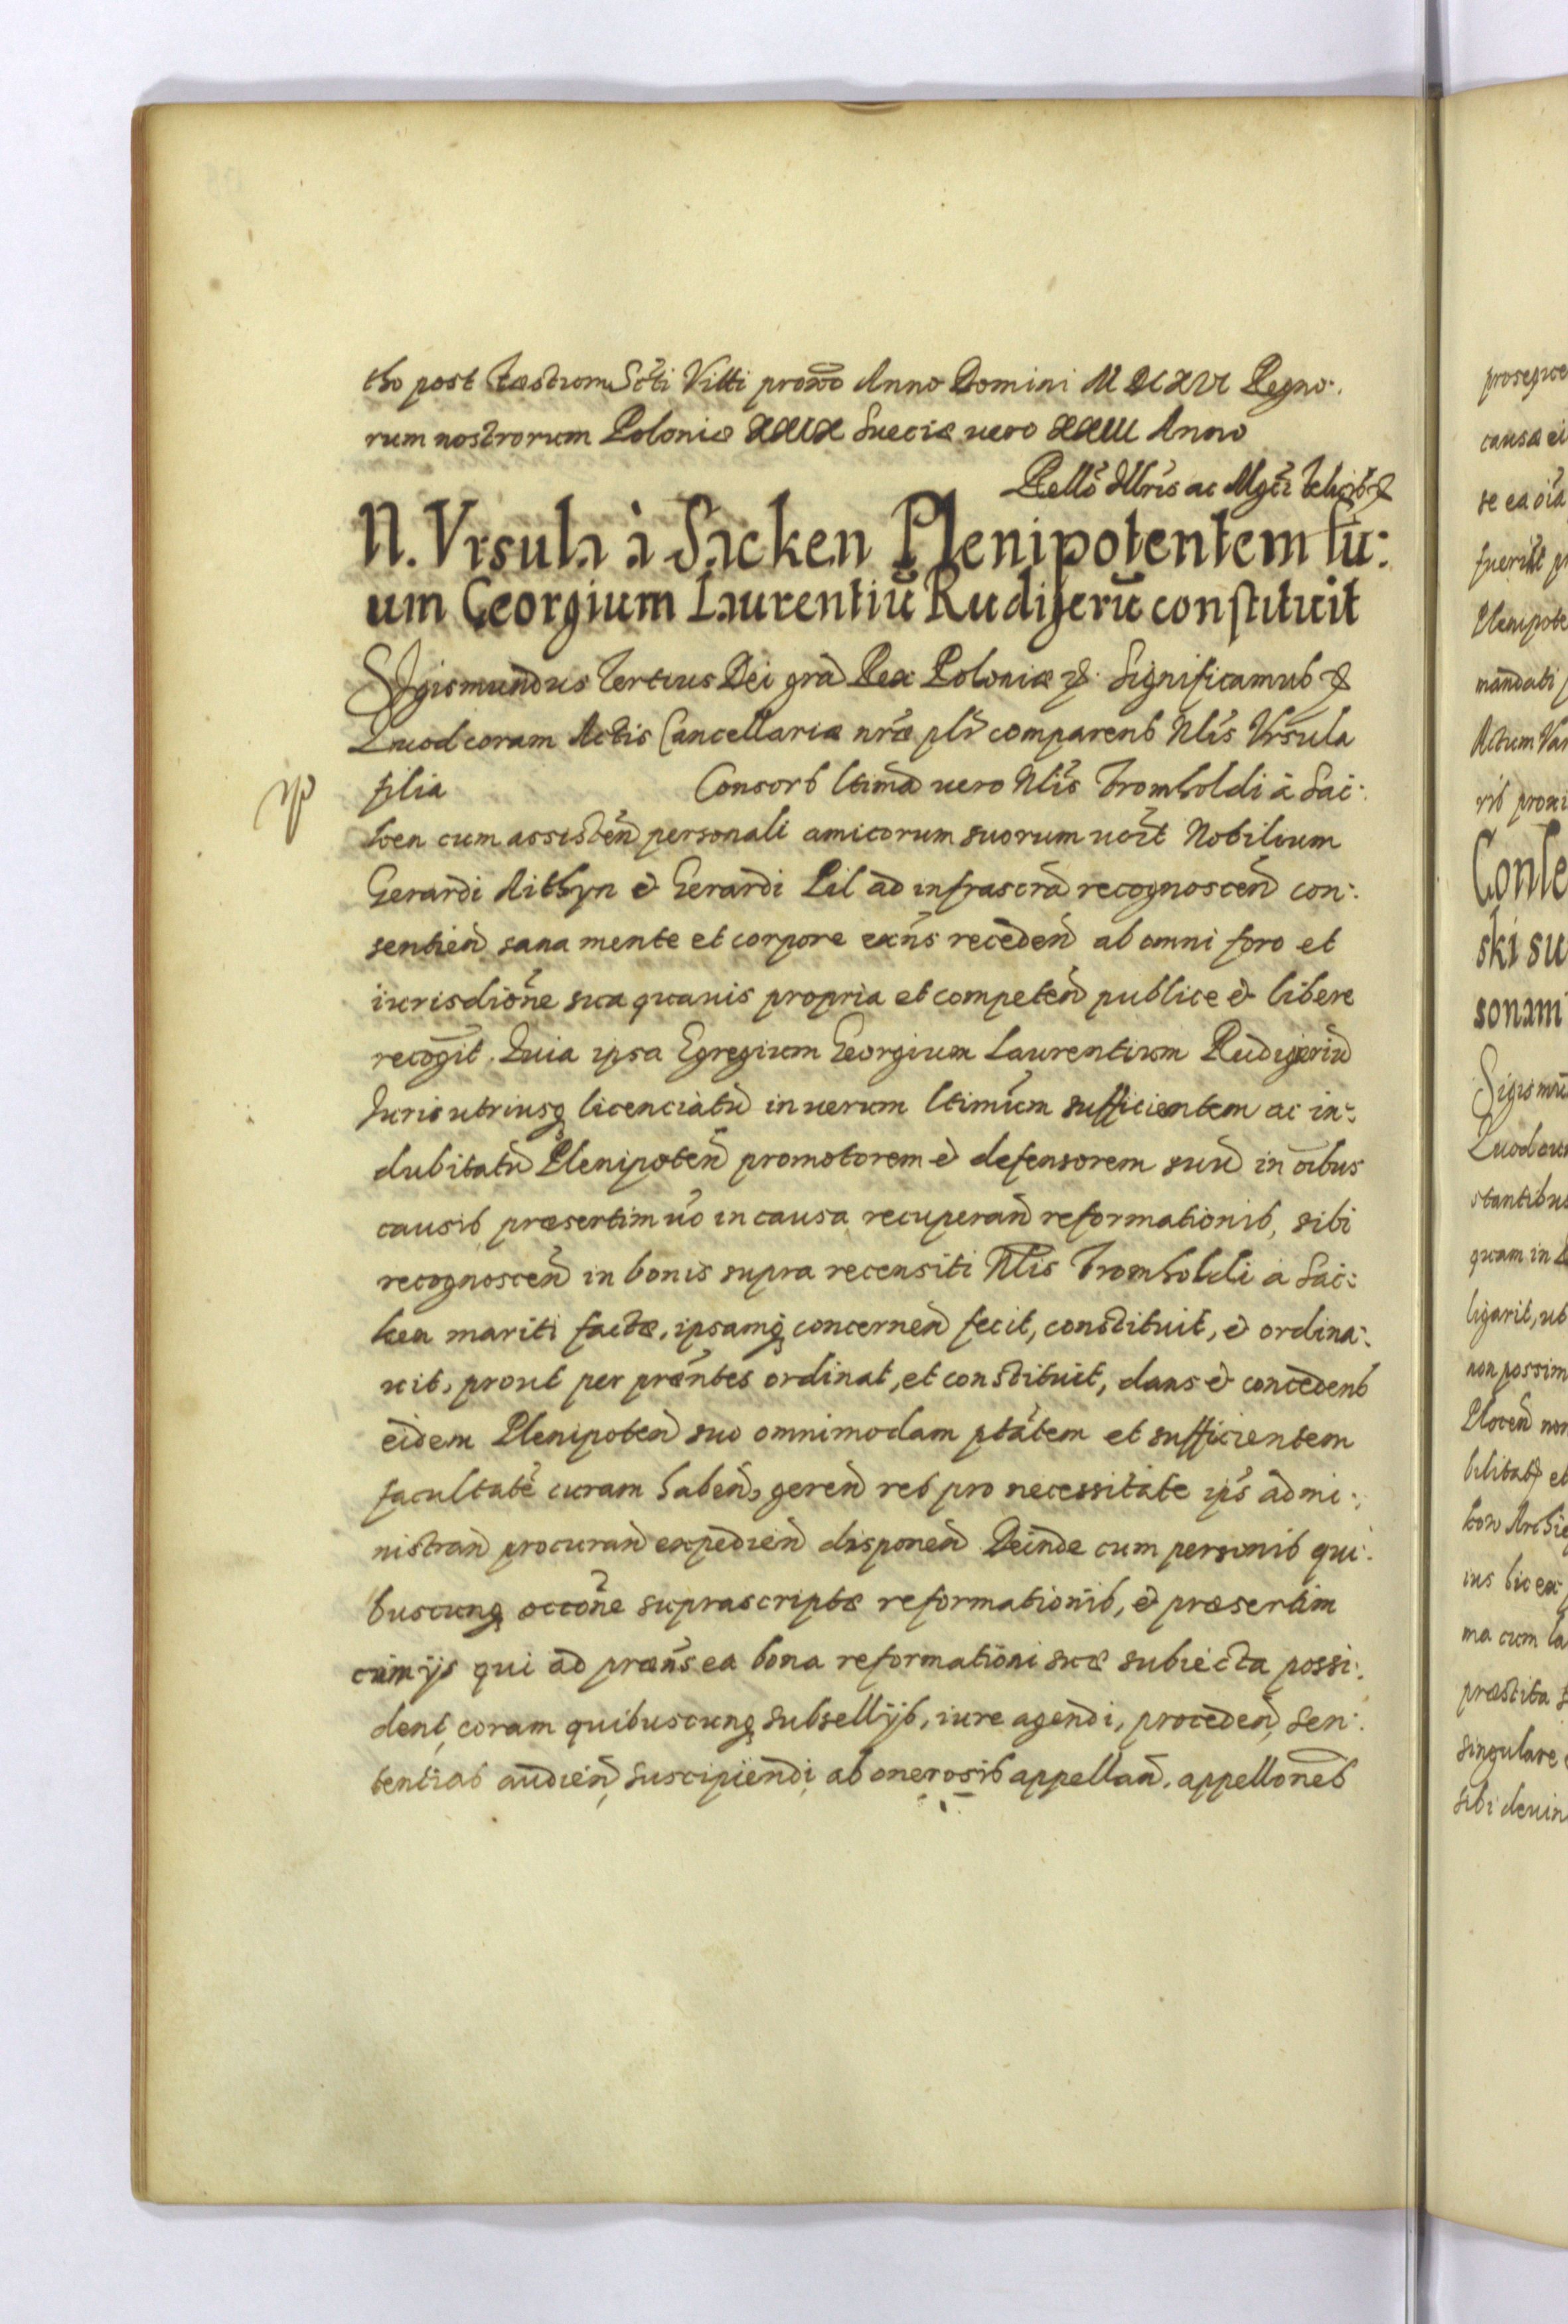 tho post Festum Scti Vitti proxo Anno Domini M DCXVI Regno:
rum nostrorum Poloniæ XXIX Sueciæ uero XXIII Anno
Rellō Illris ac Mgci
N. Vrsula à Sacken Plenipotentem su:
um Georgium Laurentiū Rudigerū constituit
Sigismundus Tertius Dei gra Rex Poloniæ &. Significamus &
Quod coram Actis Cancellariæ nræ plr comparens Nlis Vrsula
filia Consors ltima uero Nlis Fromholdi à Sac:
ken cum assisten personali amicorum suorum uczt Nobilium
Gerardi Aithyn & Gerardi Pil ad infrascra recognoscen con:
sentien sana mente et corpore exns receden ab omni foro et
iurisdione sua quauis propria et competen publice & libere
recogit. Quia ipsa Egregium Georgium Laurentium Rudigeriu
Juris utriusq licenciatu in uerum ltimum sufficientem ac in:
dubitatu Plenipoten promotorem & defensorem suu in oibus
causis præsertim uo in causa recuperan reformationis, sibi
recognoscen in bonis supra recensiti Nlis Fromholdi a Sac:
ken mariti factæ, ipsamq concernen fecit, constituit, & ordina:
uit, prout per præntes ordinat, et constituit, dans & concedens
eidem Plenipoten suo omnimodam ptatem et sufficientem
facultatē curam haben, geren res pro necessitate ips admi:
nistran procuran expedien disponen Deinde cum personis qui:
buscunq occone suprascriptæ reformationis, & præsertim
cum ijs qui ad præns ea bona reformationi suæ subiecta possi:
dent, coram quibuscunq subsellijs, iure agendi, proceden, sen:
tentias audien, suscipiendi, ab onerosis appellan, appellones
proseque
causæ ei
se ea oia
fuerit pr
Plenipote
mandati p
Actum Var
ris proxi
Conse
ski su
sonam
Sigismu
Quod cor
stantibus
quam in
ligarit, ut
non possim
Plocen non
bilitatē et
kow Archie
ius lic ex
ma cum la
præstita s
singulare
sibi deuin